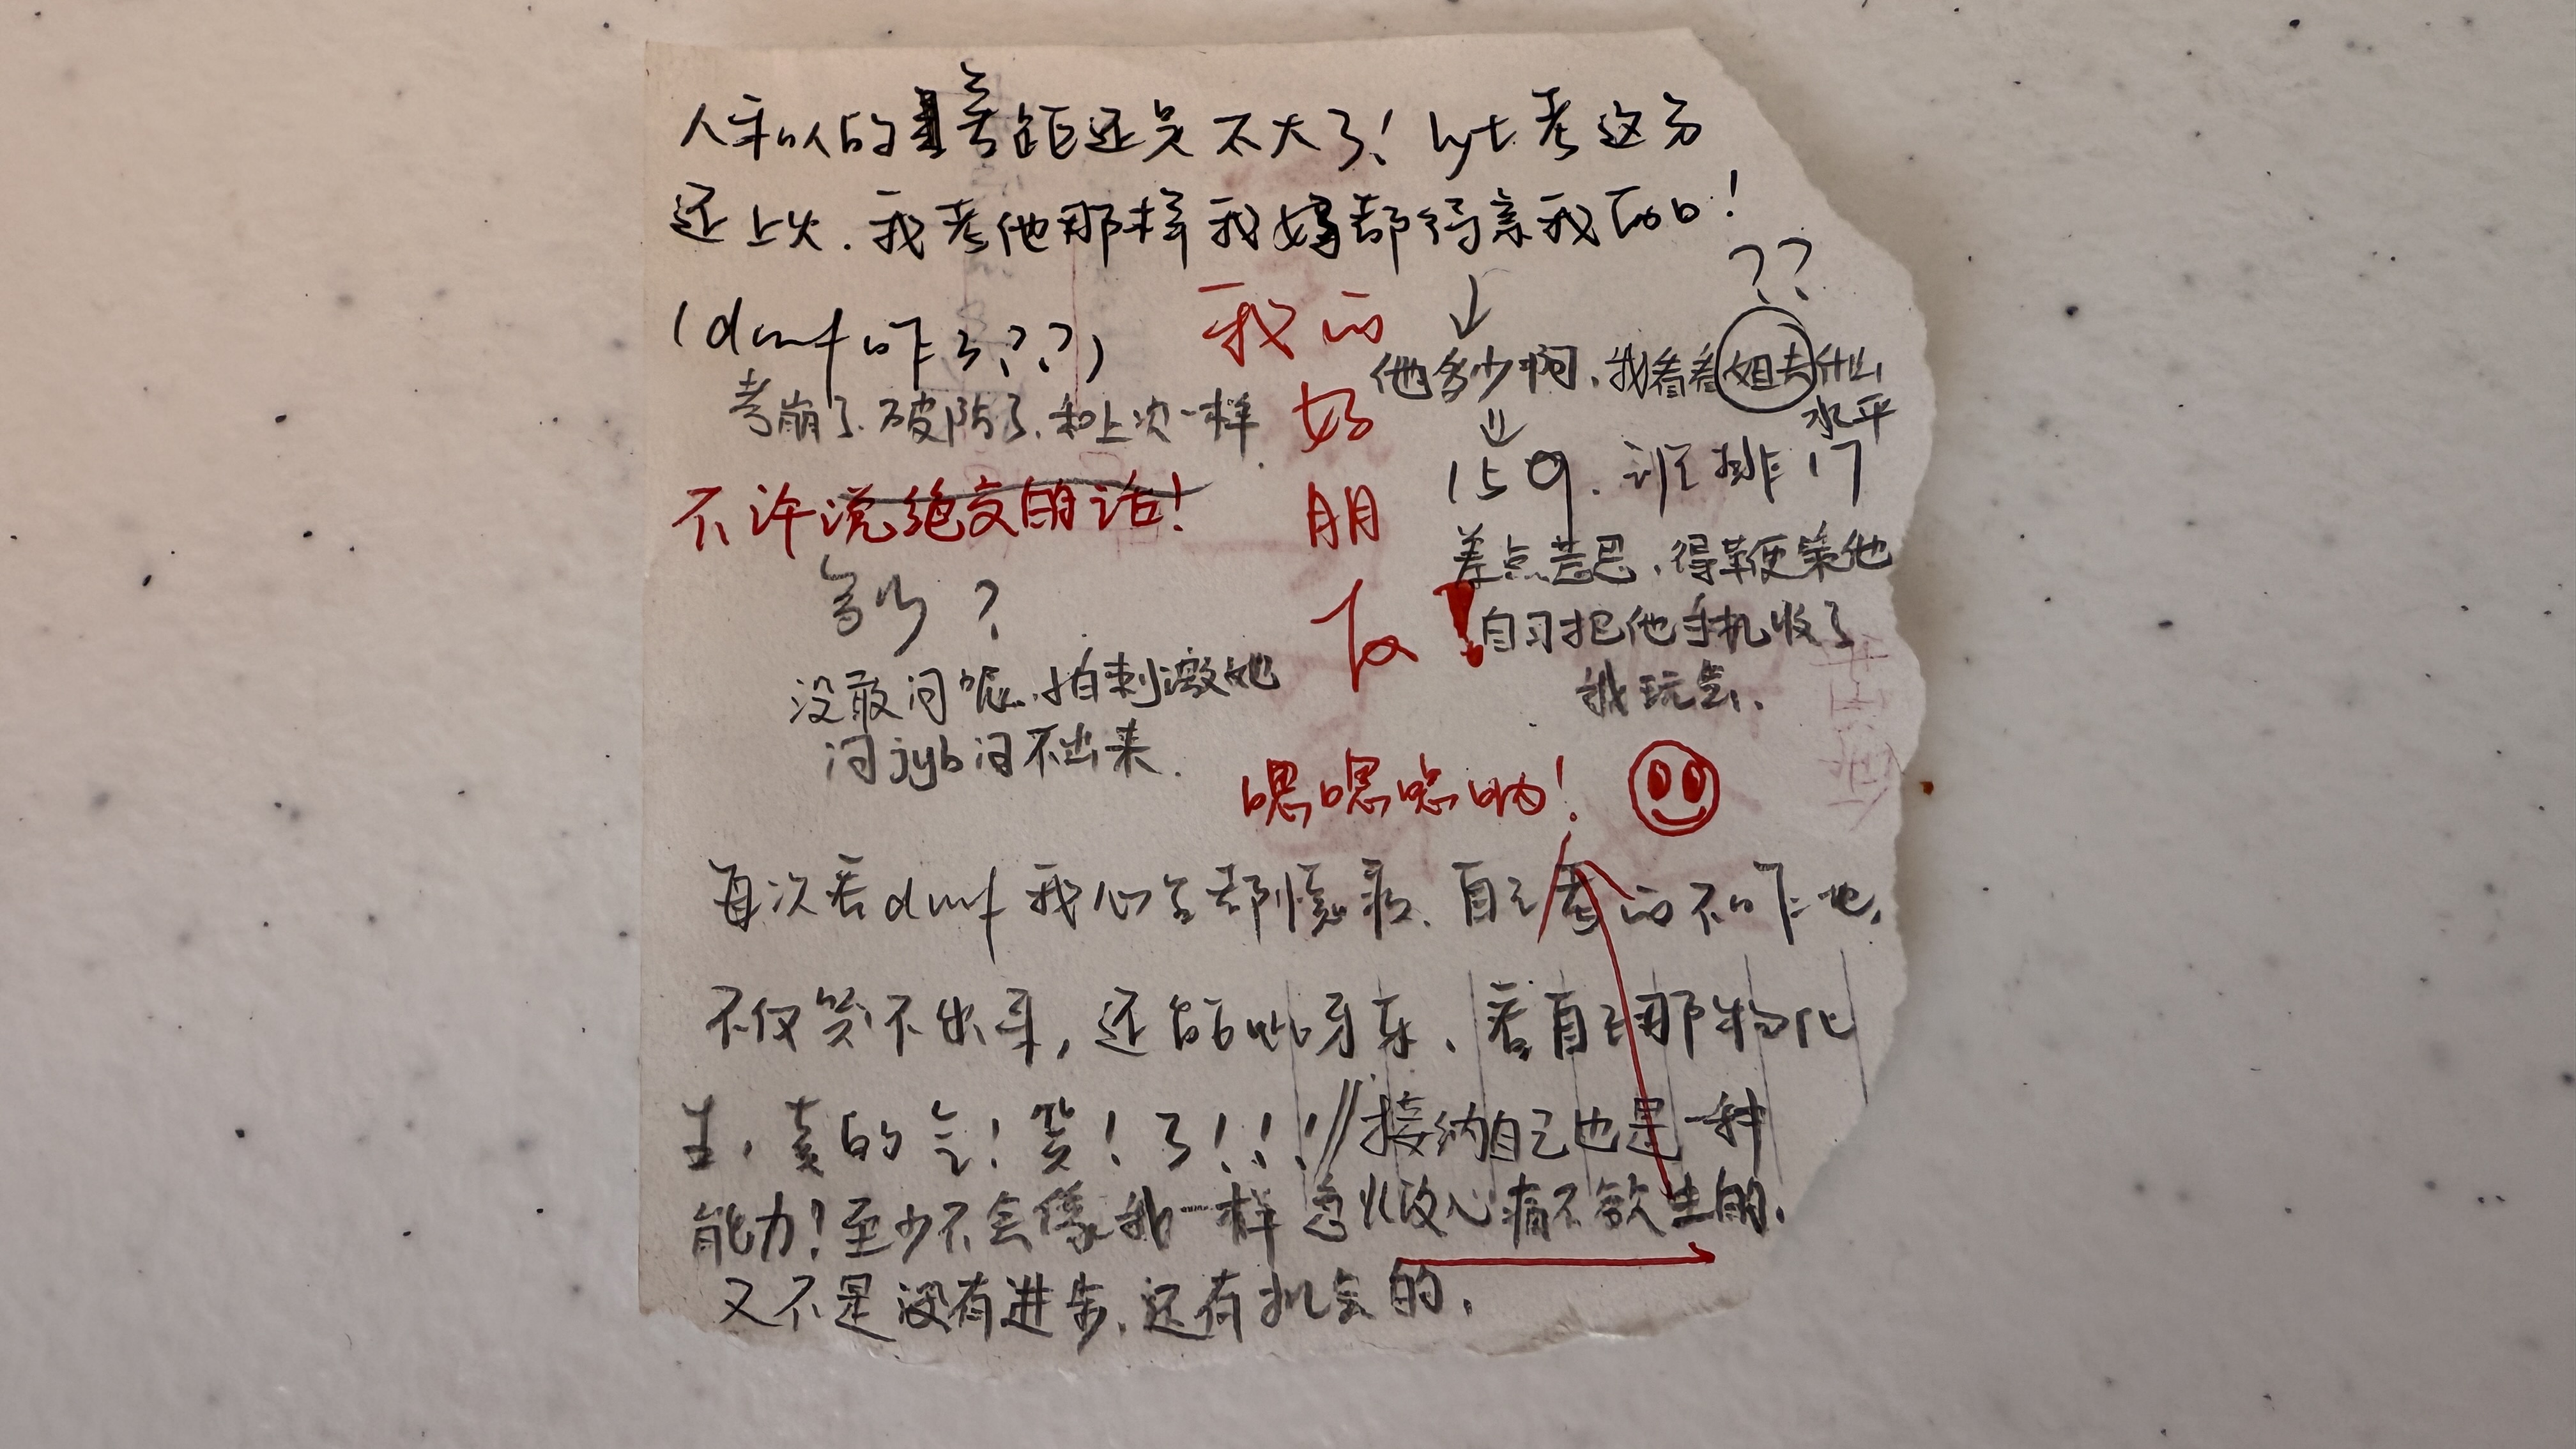 人和人的差距还是不大了！lyt考这分
还上火.我考他那样我妈都得亲我两口！
??
(dmf咋了??)
我的好朋友！
他多少啊、我看看姐夫什么
水平
考崩了.破防了.和上次一样.
159.班排17
不许说绝交的话！
差点意思、得鞭策他
多少？
自习把他手机收了
我玩会、
没敢问呢.怕刺激她
问jyb问不出来.
嗯嗯嗯呐！
每次看dmf我心里都慌慌.自己考的不咋地，
不仅哭不出来，还能呲牙乐、看自己那物化
生，真的气！笑！了！！！//接纳自己也是一种
能力！至少不会像我一样急火攻心痛不欲生的.
又不是没有进步.还有机会的.